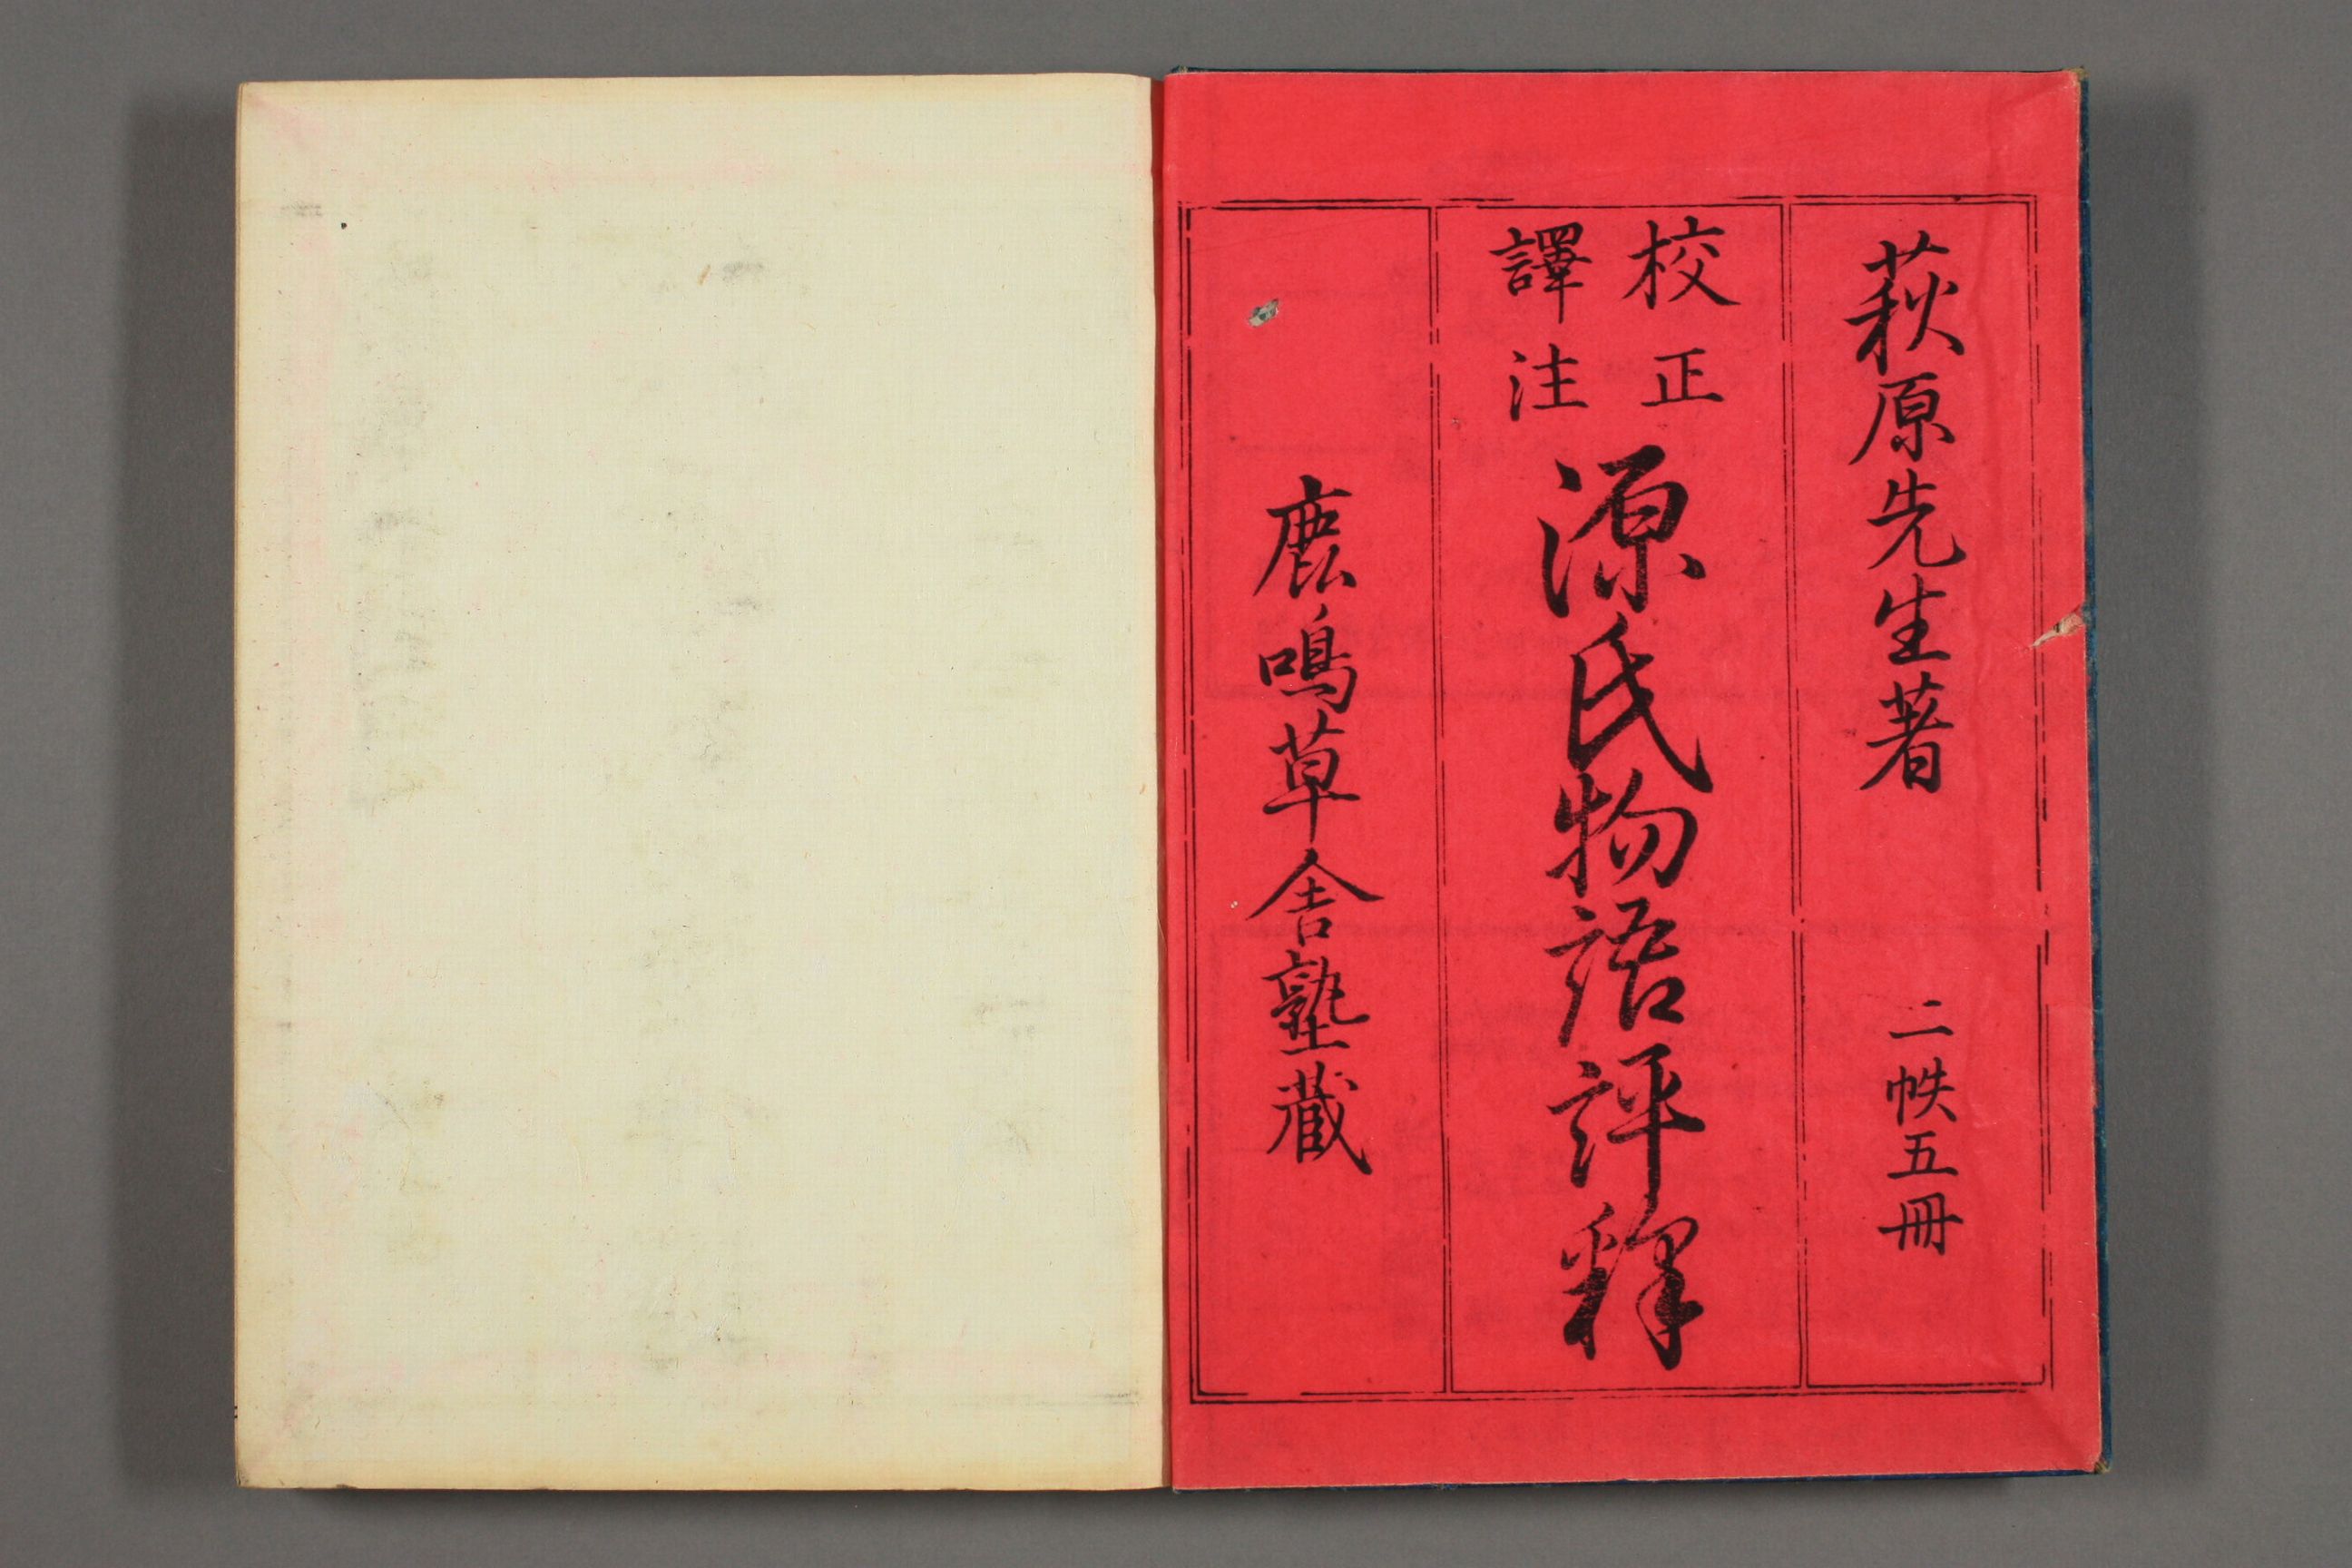 萩原先生著　二帙五冊
校正
譯注
源氏物語評釋
鹿鳴草舎塾蔵